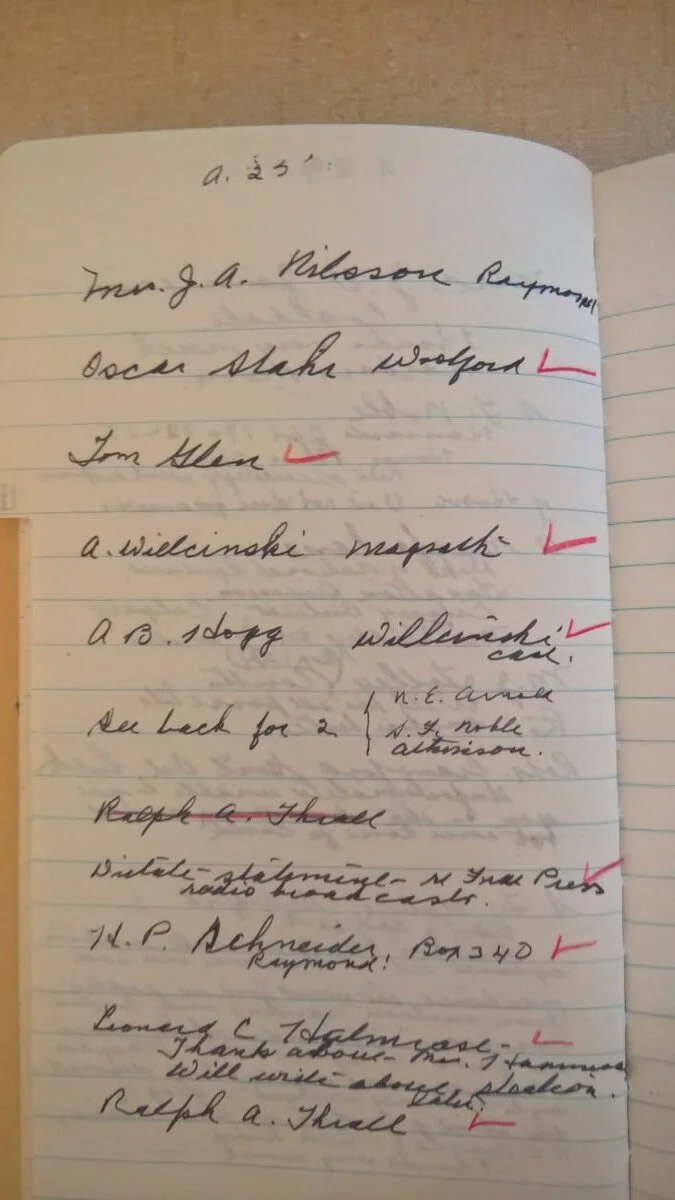 a. 23
Mrs. J. A. Nilsson Raymond
Oscar Stahr Woolford
Tom Glen
A. Wielcinski Magrath
A B. Hogg Willcinski
case.
See back for 2
N. E. Arnold
S. F. Noble
Atkinson.
Ralph A. Thrall
Dictate statement re Free Press
radio broadcasts.
H. P. Schneider, Box 340
Raymond.
Leonard C Halmrast
Thank above Mrs.
Will write above election.
later.
Ralph A. Thrall